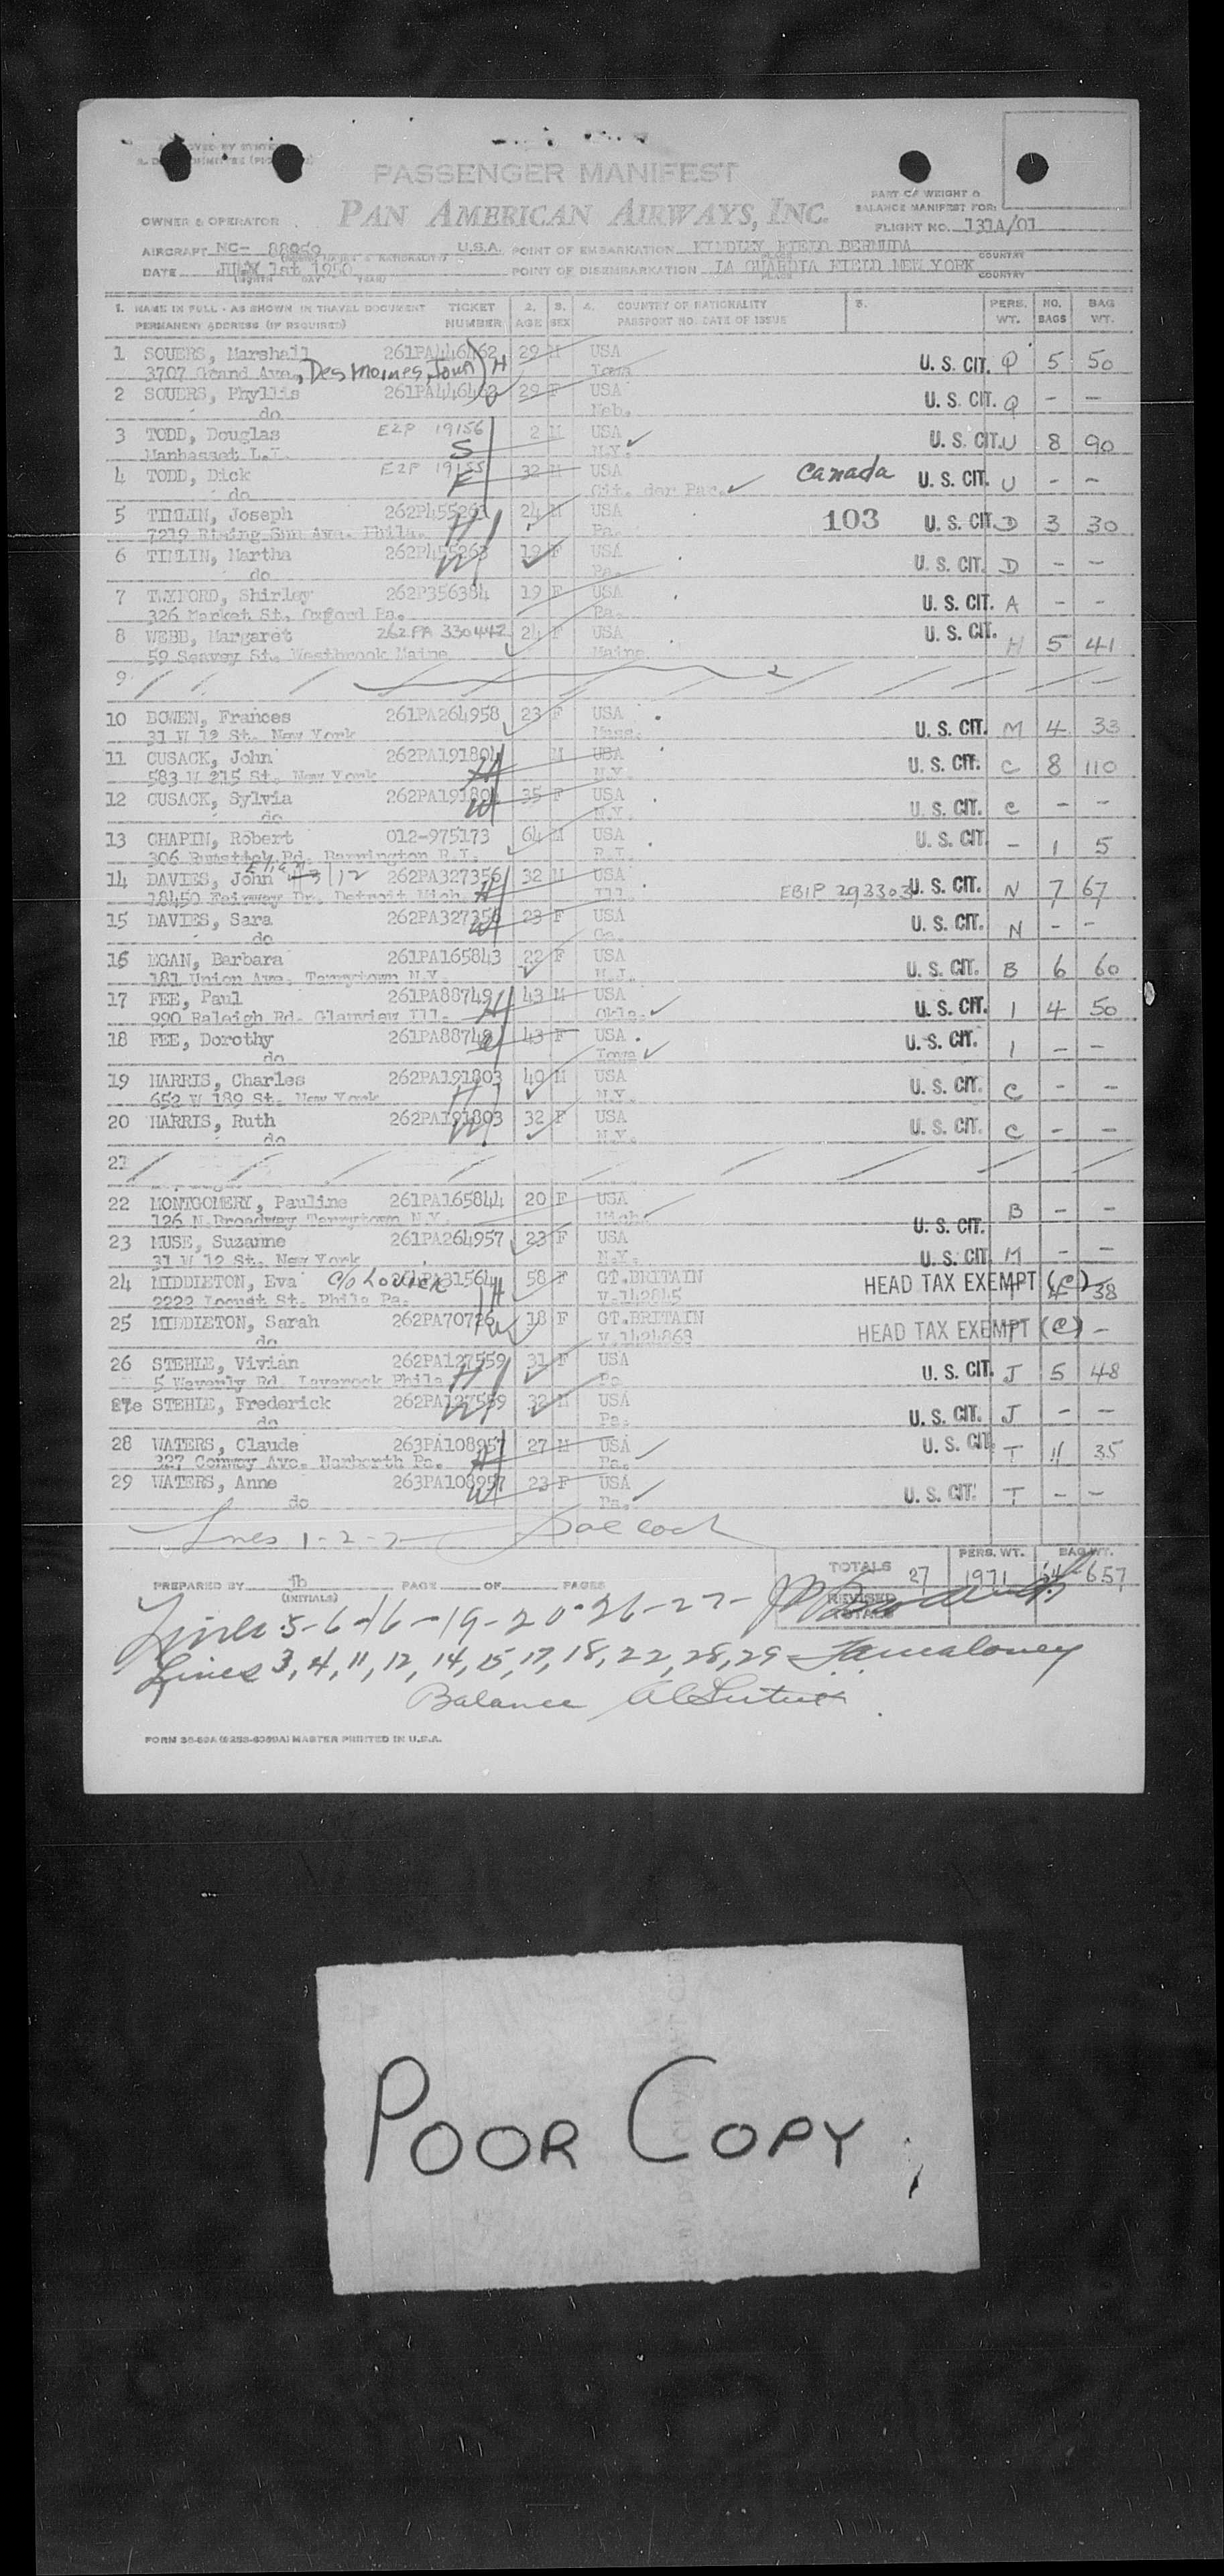 PASSENGER MANIFEST
PAN AMERICAN AIRWAYS, INC.
PART OF WEIGHT &
BALANCE MANIFEST FOR:
OWNER & OPERATOR
FLIGHT NO. 131A/01
AIRCRAFT NC- 88959 U.S.A. POINT OF EMBARKATION KINDLEY FIELD BERMUDA
DATE JULY 1st 1950 POINT OF DISEMBARKATION LA GUARDIA FIELD NEW YORK
1. NAME IN FULL - AS SHOWN IN TRAVEL DOCUMENT TICKET 2. 3. 4. COUNTRY OF NATIONALITY 5. PERS. NO. BAG
PERMANENT ADDRESS (IF REQUIRED) NUMBER AGE SEX PASSPORT NO. DATE OF ISSUE WT. BAGS WT.
1 SOUERS, Marshall 261PA446462 29 M USA U. S. CIT. Q 5 50
3707 Grand Ave., Des Moines, Iowa H Iowa
2 SOUERS, Phyllis 261PA446462 29 F USA U. S. CIT. Q - -
do Neb.
3 TODD, Douglas EZP 19156 2 M USA U. S. CIT. U 8 90
Manhasset L.I. S N.Y.
4 TODD, Dick EZP 19155 32 M USA Canada U. S. CIT. U - -
do F Cit. der Par.
5 TIMLIN, Joseph 262P455263 24 M USA 103 U. S. CIT. D 3 30
7219 Rising Sun Ave. Phila. H Pa.
6 TIMLIN, Martha 262P455263 19 F USA U. S. CIT. D - -
do W Pa.
7 TWYFORD, Shirley 262P356384 19 F USA U. S. CIT. A - -
326 Market St. Oxford Pa. Pa.
8 WEBB, Margaret 262PA 330442 24 F USA U. S. CIT. H 5 41
59 Seavey St. Westbrook Maine Maine
9
10 BOWEN, Frances 261PA264958 23 F USA U. S. CIT. M 4 33
31 W 12 St. New York Mass.
11 CUSACK, John 262PA191804 M USA U. S. CIT. C 8 110
583 W 215 St. New York H N.Y.
12 CUSACK, Sylvia 262PA191804 35 F USA U. S. CIT. C - -
do W N.Y.
13 CHAPIN, Robert 012-975173 64 M USA U. S. CIT - 1 5
306 Rumstick Rd. Barrington R.I. R.I.
14 DAVIES, John 262PA327356 32 M USA EBIP 293303 U. S. CIT. N 7 67
18450 Fairway Dr. Detroit Mich. H Ill.
15 DAVIES, Sara 262PA327356 23 F USA U. S. CIT. N - -
do W Ga.
16 EGAN, Barbara 261PA165843 22 F USA U. S. CIT. B 6 60
181 Union Ave. Tarrytown N.Y. N.J.
17 FEE, Paul 261PA88749 43 M USA U. S. CIT. 1 4 50
990 Raleigh Rd. Glenview Ill. H Okla.
18 FEE, Dorothy 261PA88749 43 F USA U. S. CIT. 1 - -
do W Iowa
19 HARRIS, Charles 262PA191803 40 M USA U. S. CIT. C - -
652 W 189 St. New York H N.Y.
20 HARRIS, Ruth 262PA191803 32 F USA U. S. CIT. C - -
do W N.Y.
21
22 MONTGOMERY, Pauline 261PA165844 20 F USA B - -
126 N.Broadway Tarrytown N.Y. Mich. U. S. CIT.
23 MUSE, Suzanne 261PA264957 23 F USA U. S. CIT M - -
31 W 12 St. New York N.Y.
24 MIDDLETON, Eva C/o 58 F GT.BRITAIN HEAD TAX EXEMPT (C) 38
2222 Locust St. Phila Pa. V.142845
25 MIDDLETON, Sarah 262PA70726 18 F GT.BRITAIN HEAD TAX EXEMPT (C) -
do V.1424863
26 STEHLE, Vivian 262PA127559 31 F USA U. S. CIT. J 5 48
5 Waverly Rd. Laverock Phila H Pa.
27 STEHLE, Frederick 262PA127559 32 M USA U. S. CIT. J - -
do W Pa.
28 WATERS, Claude 263PA108957 27 M USA U. S. CIT. T 11 35
327 Conway Ave. Narberth Pa. H Pa.
29 WATERS, Anne 263PA108957 23 F USA U. S. CIT. T - -
do W Pa.
Lines 1-2-7
TOTALS 27 PERS. WT. 1971 BAG WT. 657
PREPARED BY jb PAGE OF PAGES
(INITIALS)
REVISED TOTALS
Lines 5-6-16-19-20-26-27-
Lines 3, 4, 11, 12, 14, 15, 17, 18, 22, 28, 29
Balance
FORM 36-59A (8288-6389A) MASTER PRINTED IN U.S.A.
POOR COPY